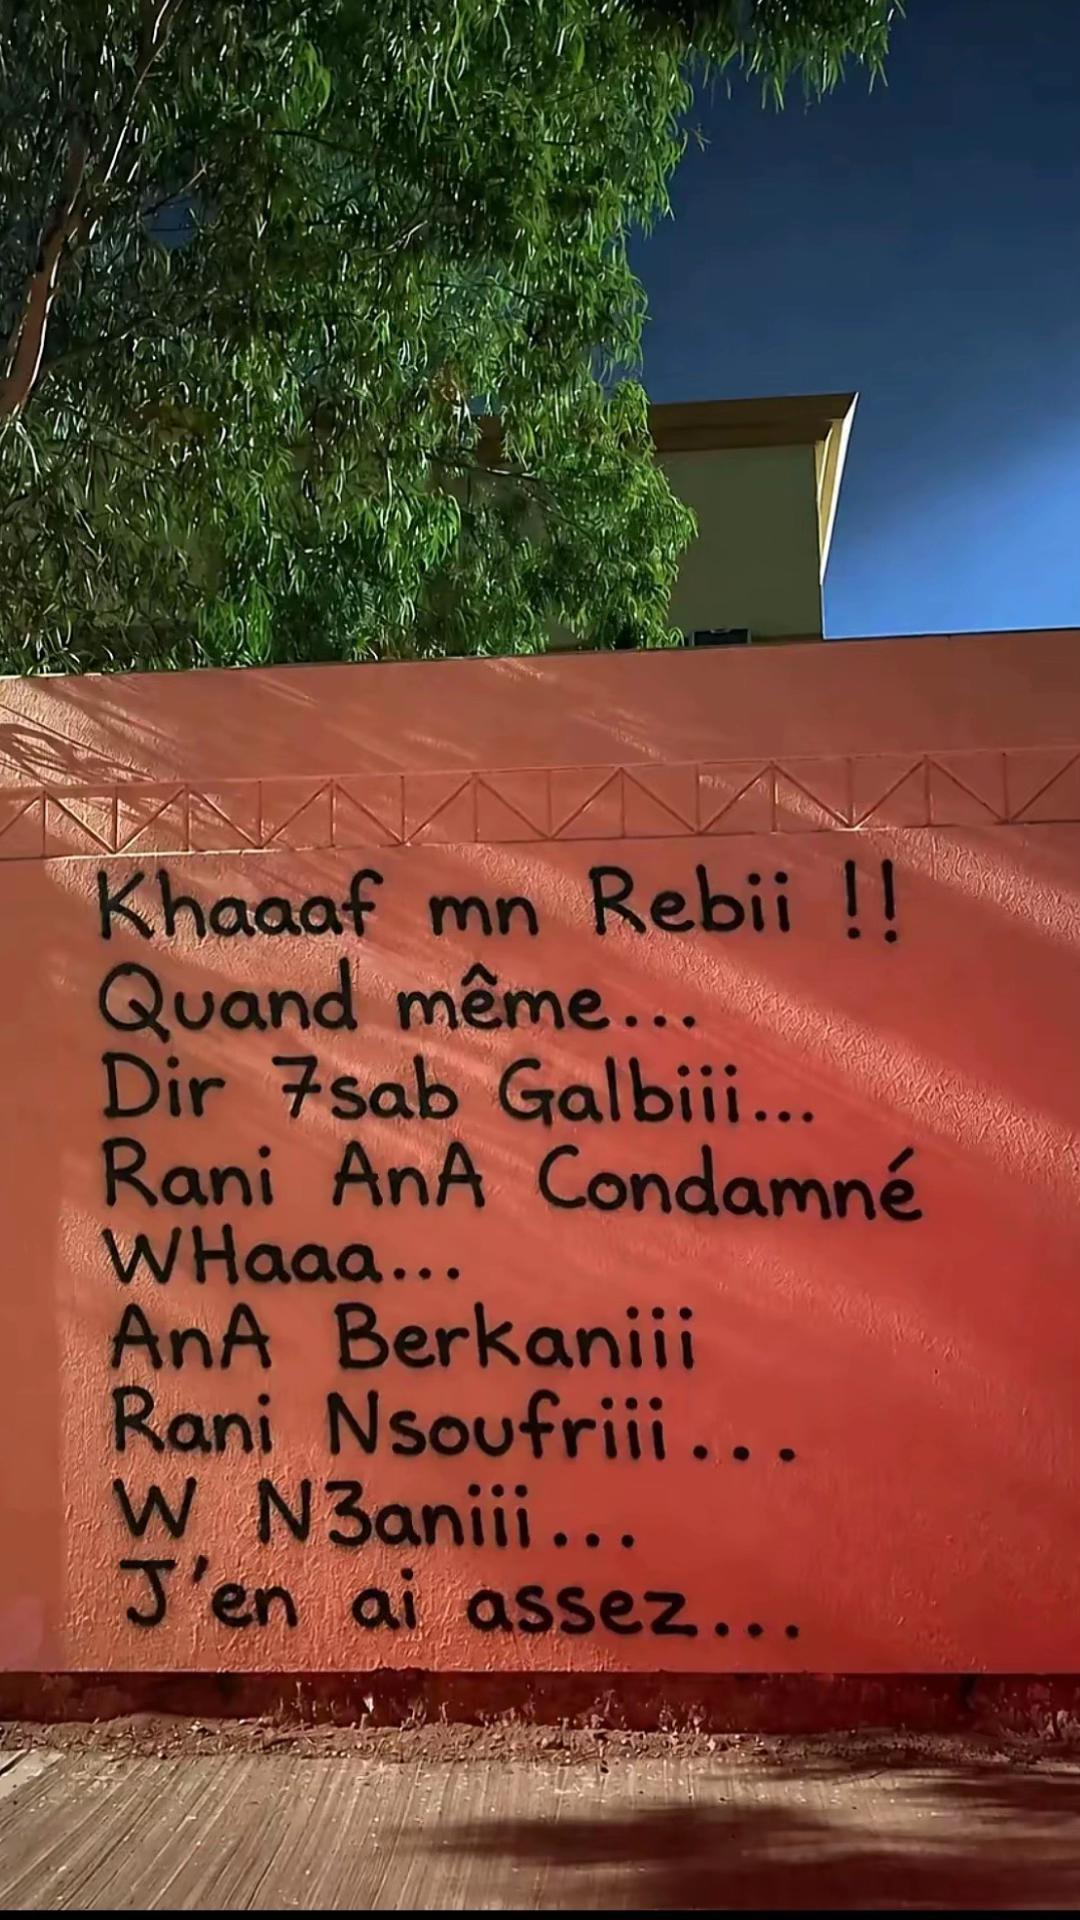 Khaaaf mn Rebii !!
Quand même...
Dir 7sab Galbiii...
Rani AnA Condamné
WHaaa...
AnA Berkaniii
Rani Nsoufriii...
W N3aniii...
J'en ai assez...